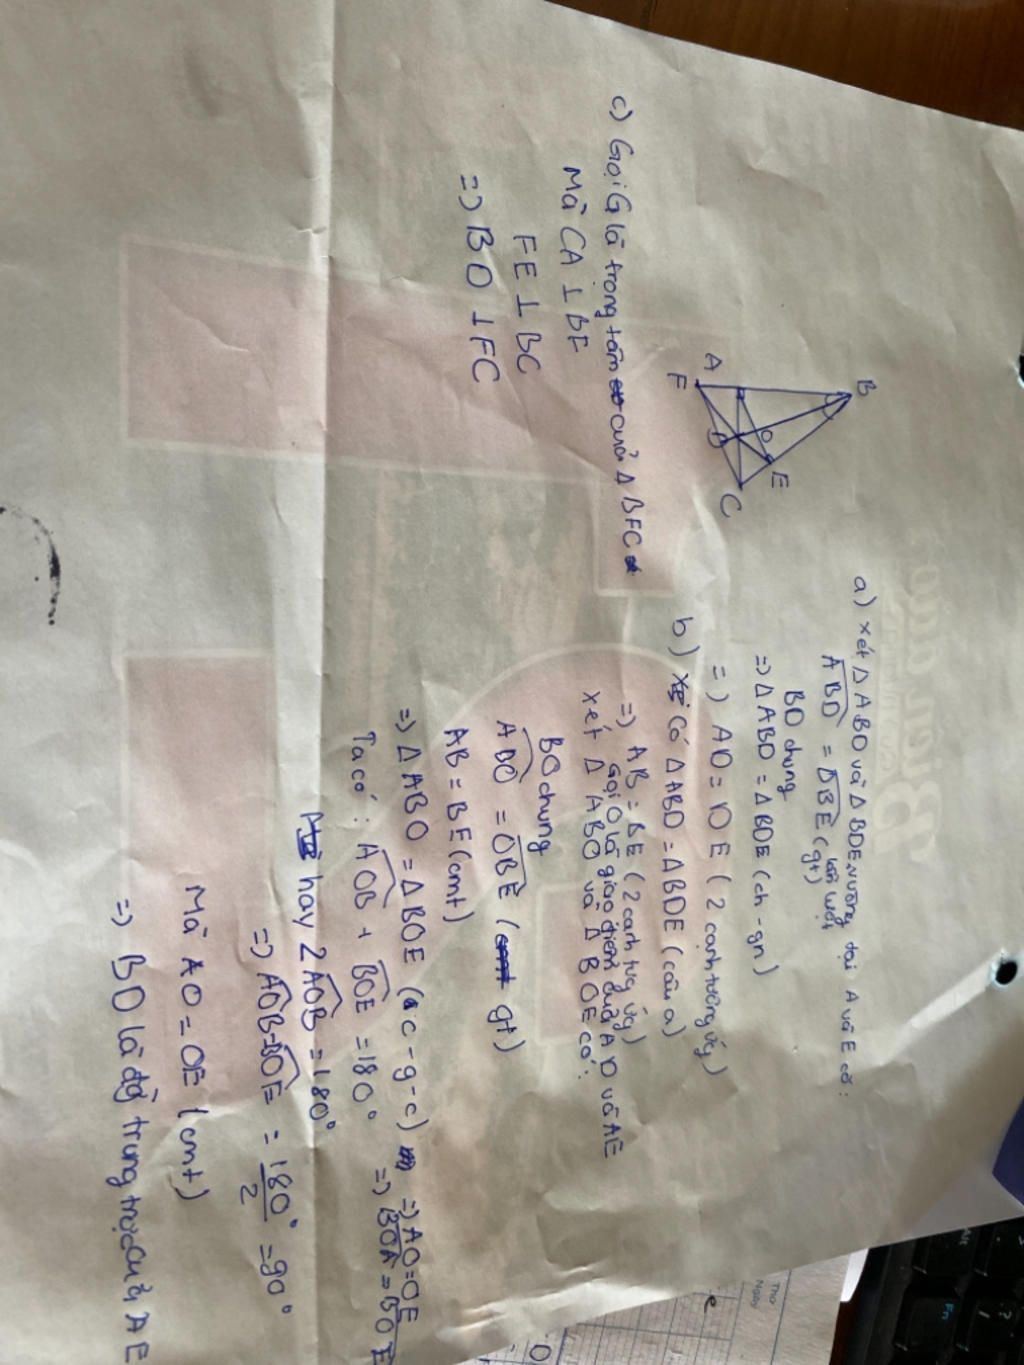 B
O
E
A
F
D
C
a) xét Δ ABD và Δ BDE vuông tại A và E có:
lần lượt
ABD = DBE (gt)
BD chung
=> Δ ABD = Δ BDE (ch - gn)
=> AD = DE (2 cạnh tương ứg)
b) Có Δ ABD = Δ BDE (câu a)
=> AB = BE (2 cạnh tưg ứg)
Gọi O là giao điểm của A D và AE
xét Δ ABO và Δ BOE có:
BO chung
ABO = OBE (gt)
AB = BE (cmt)
=> Δ ABO = Δ BOE (c - g - c) => AO = OE
=> BOA = BOE
Ta có: AOB + BOE = 180°
hay 2 AOB = 180°
=> AOB = BOE = 180°/2 = 90°
Mà AO = OE (cmt)
=> BD là đg trung trực của AE
c) Gọi G là trọng tâm của Δ BFC
Mà CA ⊥ BF
FE ⊥ BC
=> BD ⊥ FC
Thứ
Ngày
Alt
Fn
e
O